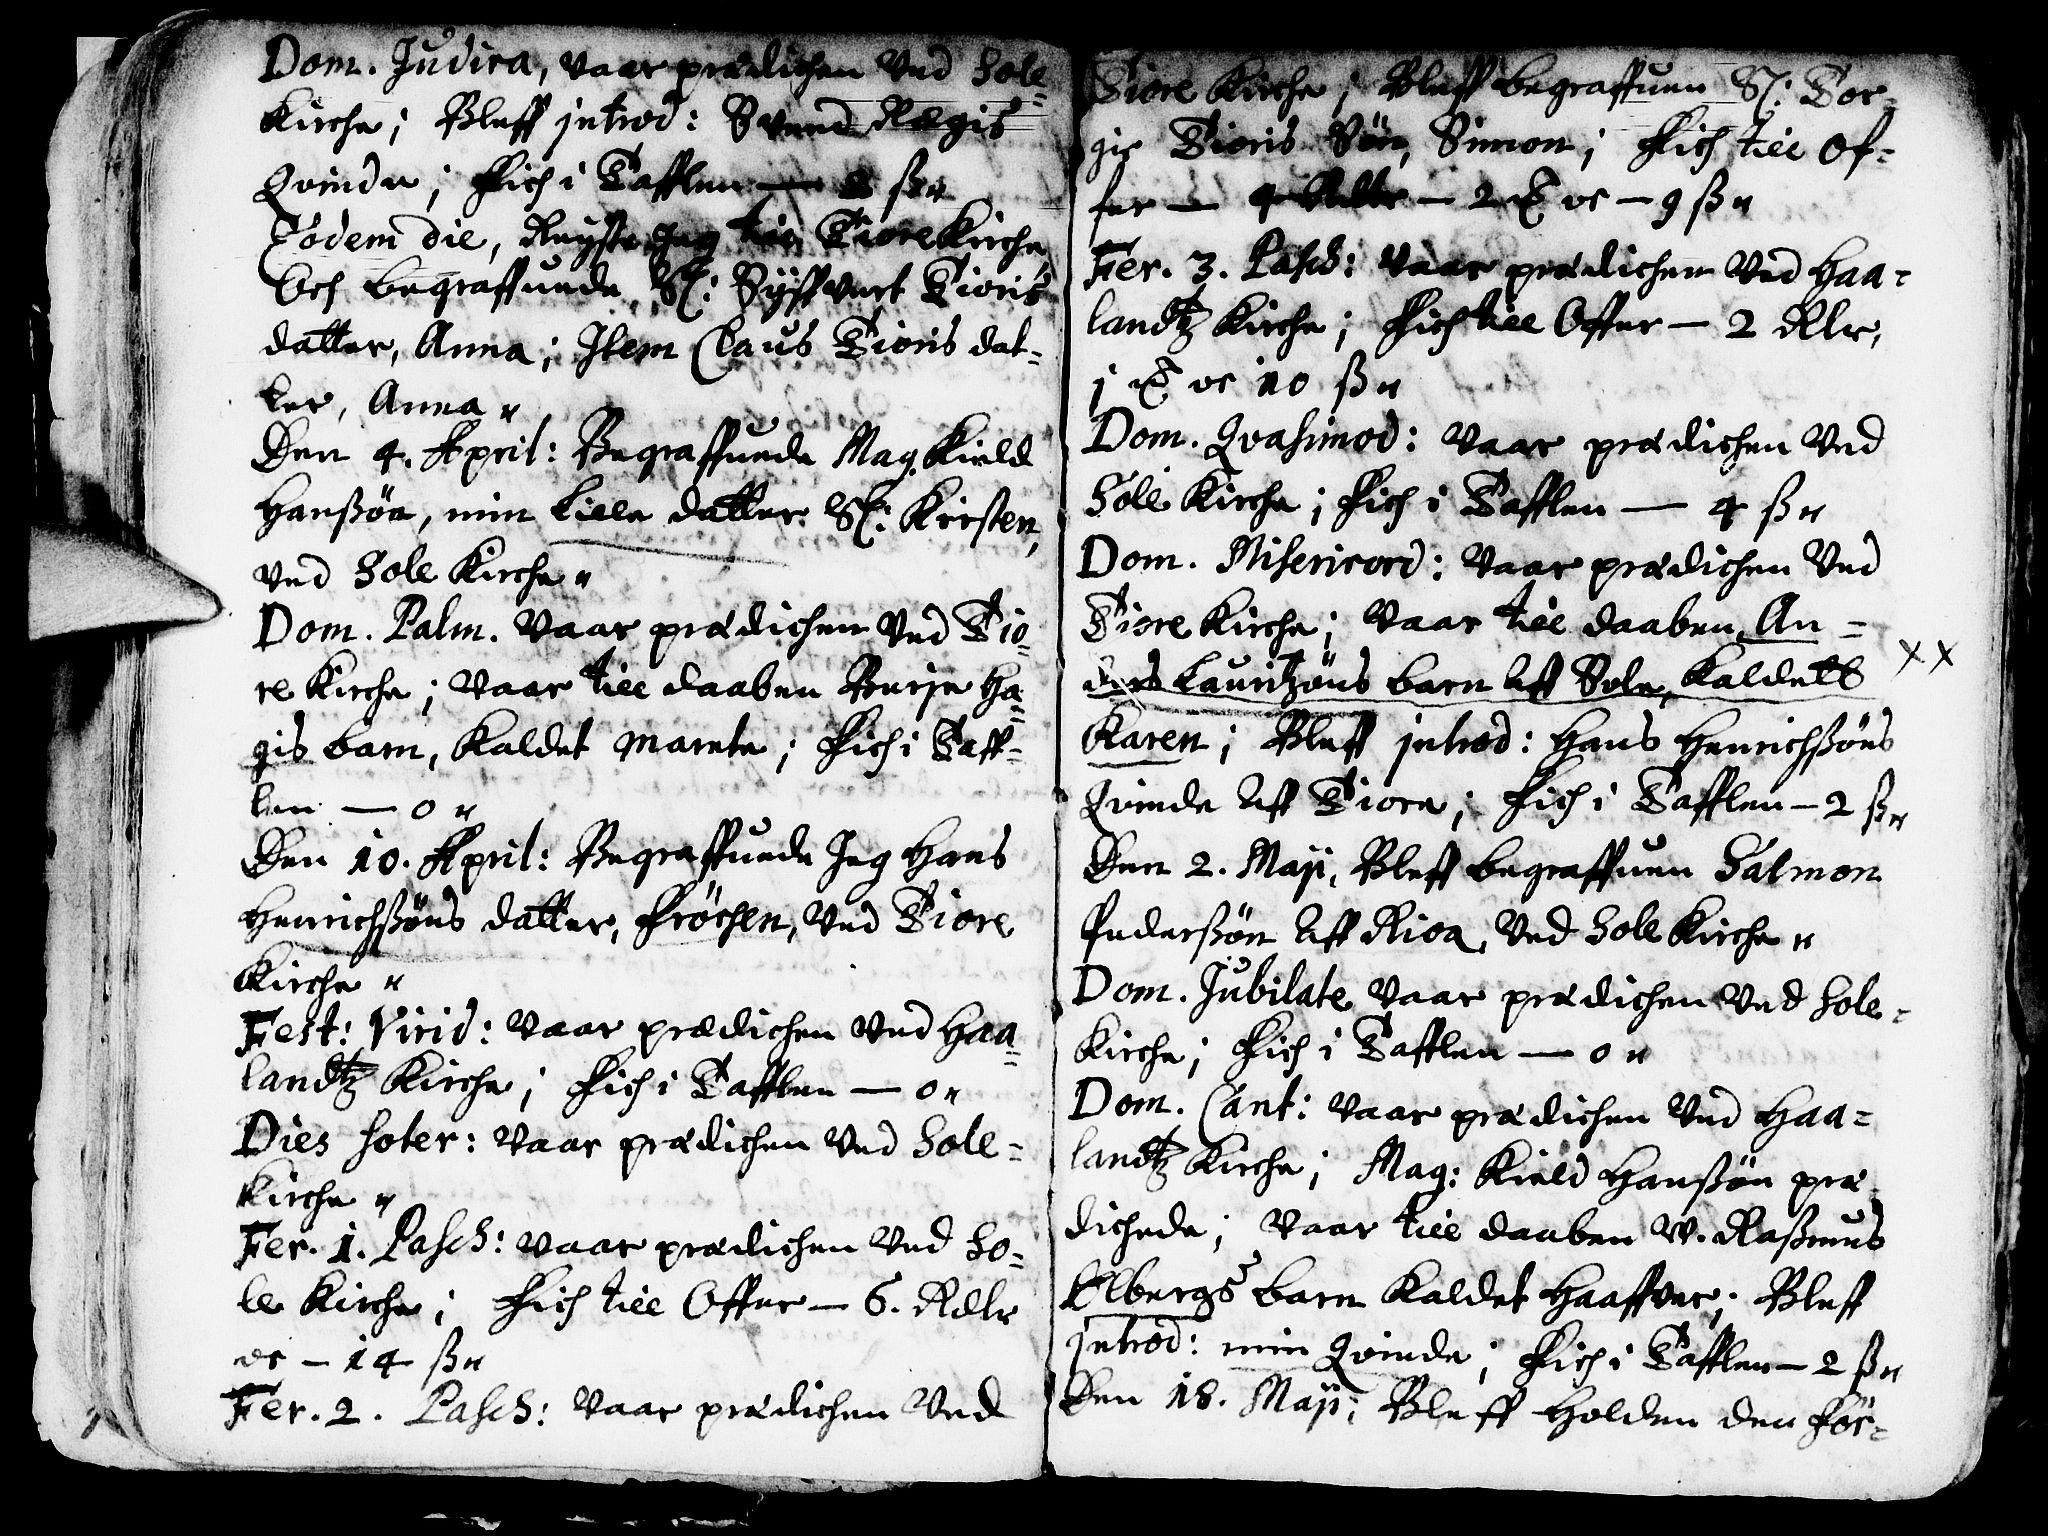 Dom. Judica, vaar prædichen ved Sole=
Kirche; Bleff introd: Svend Rægis
Qvinde; Fich i Tafflen — 8 ß"
Eodem die, Reyste Jeg till Tiore Kirche
och begraffuede Sl: Syffvert Tioris
datter, Anna; Item Claus Tioris dat=
ter, Anna"
Den 4. April: Begraffuede Mag. Kield
Hanßøn, min lille datter Sl: Kirsten,
ved Sole Kirche"
Dom. Palm. vaar prædichen ved Tio=
re Kirche; vaar till daaben Berje Ha=
gis barn, kaldet Marete; Fich i Taff=
len — 0"
Den 10. April: Begraffuede Jeg Hans
Henrichßøns datter, Frøchen, ved Tiore
Kirche"
Fest: Virid: vaar prædichen ved Haa=
landtz Kirche; Fich i Tafflen — 0"
Dies Soter: vaar prædichen ved Sole=
kirche"
Fer. 1. Pasch: vaar prædichen ved So=
le Kirche; Fich till Offer — 6. Rdlr
oc — 14 ß"
Fer. 2. Pasch: vaar prædichen ved
Tiore Kirche; Bleff begraffuen Sl: Tor=
gis Tioris Søn, Simon; Fich till Of=
fer — 4 Rdlr — 2 oc — 9 ß"
Fer. 3. Pasch: vaar prædichen ved Haa=
landtz Kirche; Fich till Offer — 2 Rlr,
j oc 10 ß"
Dom. Qvasimod: vaar prædichen ved
Sole Kirche; Fich i Tafflen — 4 ß"
Dom. Misericord: vaar prædichen ved
Tiore Kirche; vaar till daaben An=
ders Lauritzøns barn aff Sole, kaldett xx
Karen; Bleff introd: Hans Henrichßøns
Qvinde aff Tiore; Fich i Tafflen — 2 ß"
Den 2. Maji, Bleff begraffuen Salmon
Pederßøn aff Rioa, ved Sole Kirche"
Dom. Jubilate vaar prædichen ved Sole=
Kirche; Fich i Tafflen — 0"
Dom. Cant: vaar prædichen ved Haa=
landtz Kirche; Mag: Kield Hanßøn præ
dichede; vaar till daaben Raßmus
Elbergs barn kaldet Haaffver; Bleff
introd: min Qvinde; Fich i Tafflen — 2 ß"
Den 18. Maji, Bleff Holden den før=